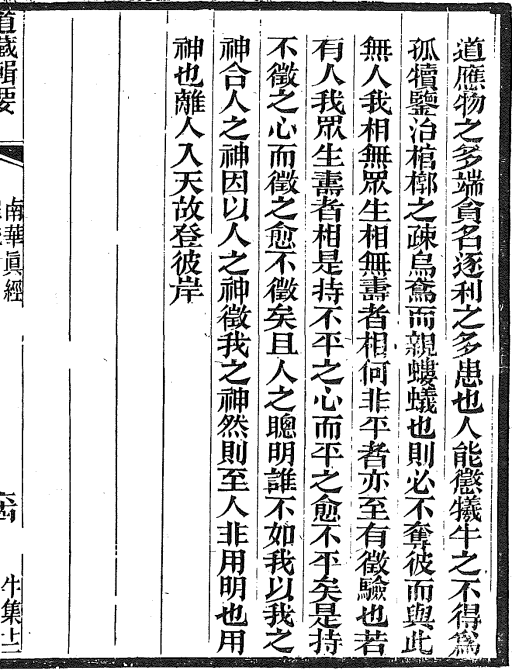 道應物之多端貪名逐利之多患也人能懲犧牛之不得爲
孤犢鑒治棺槨之疎烏鳶而親螻蟻也則必不奪彼而與此
無人我相無眾生相無壽者相何非平者亦至有徵驗也若
有人我眾生壽者相是持不平之心而平之愈不平矣是持
不徵之心而徵之愈不徵矣且人之聰明誰不如我以我之
神合人之神因以人之神徵我之神然則至人非用明也用
神也離人入天故登彼岸
道藏輯要
南華眞經
牛集十二